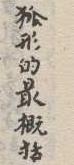 狐形的最概括